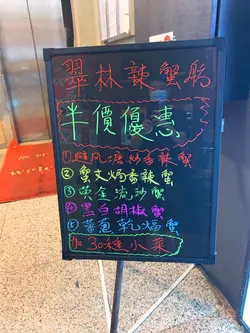 翠林辣蟹騷
半價優惠
①避風塘炒香辣蟹
②蟹皇炆香辣蟹
③黄金流沙蟹
④黑白胡椒蟹
⑤薑蔥乾焗蟹
加30種小菜